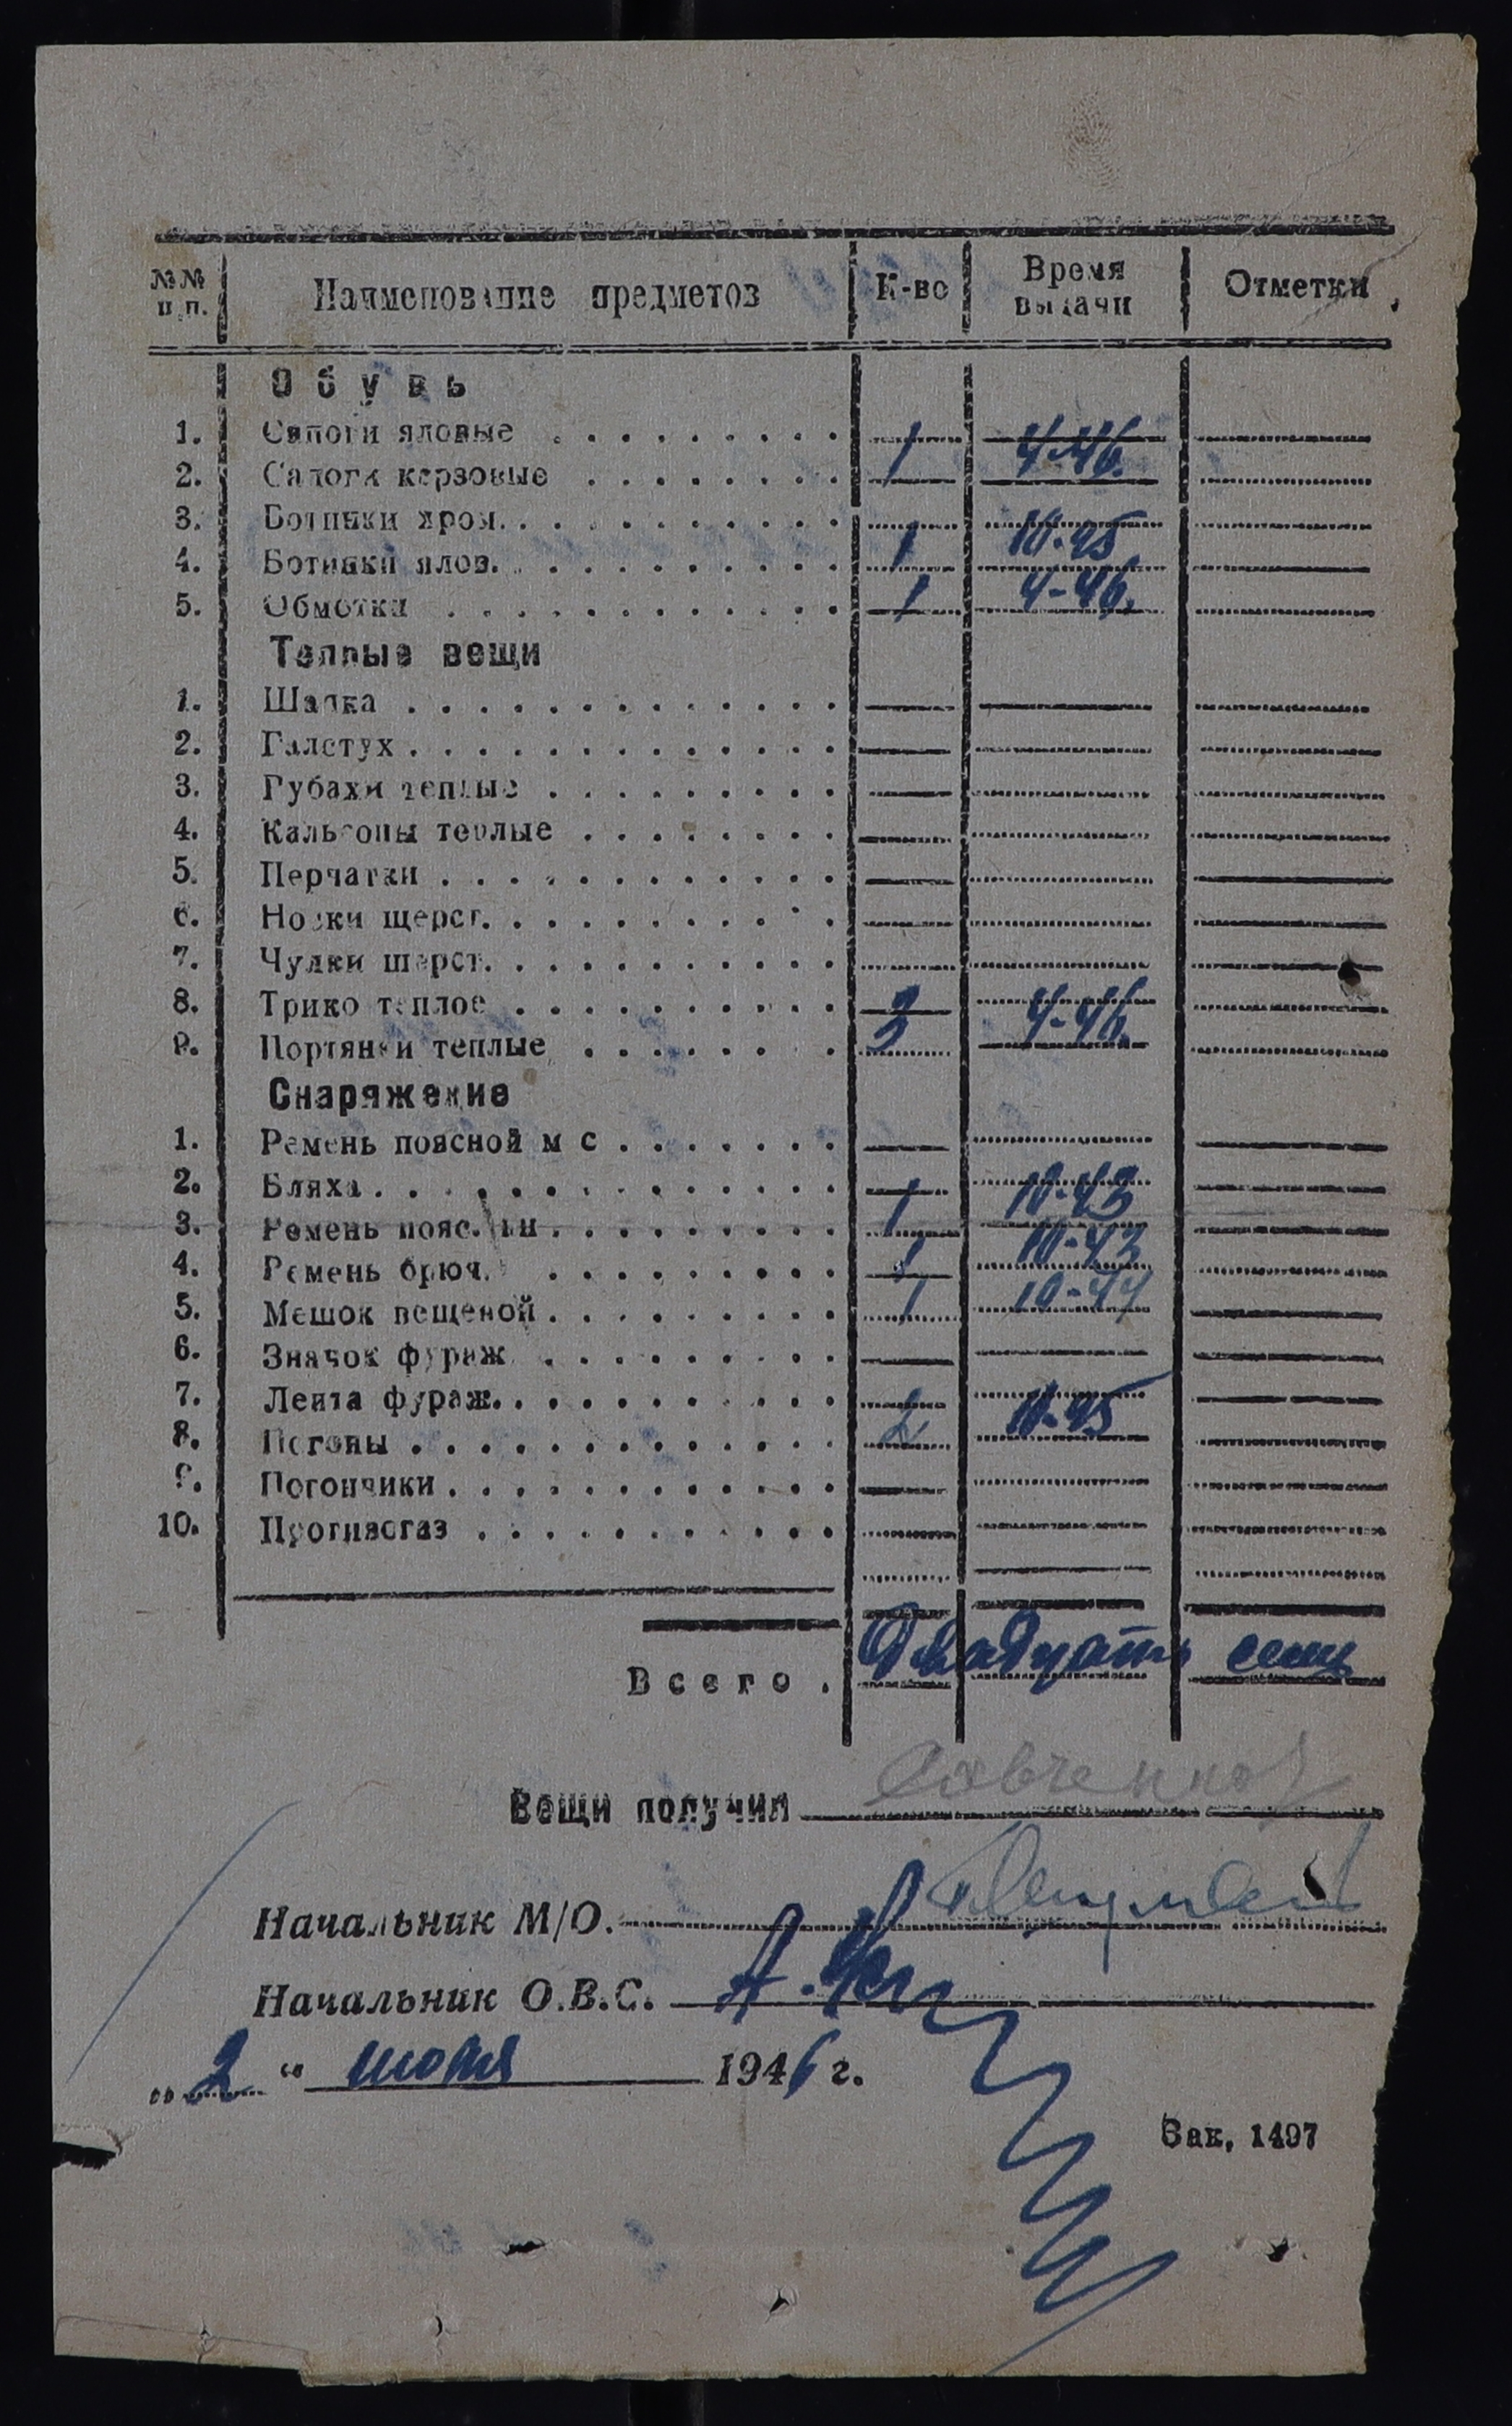 №№ п.п. Наименование предметов К-во Время выдачи Отметки
Обувь
1. Сапоги яловые . . . . . . . . 1 4-46.
2. Сапоги керзовые . . . . . . . .
3. Ботинки хром. . . . . . . . . . 1 10-45
4. Ботинки ялов. . . . . . . . . .
5. Обмотки . . . . . . . . . . . 1 4-46.
Теплые вещи
1. Шапка . . . . . . . . . . . . .
2. Галстух . . . . . . . . . . . . .
3. Рубахи теплые . . . . . . . . .
4. Кальсоны теплые . . . . . . . .
5. Перчатки . . . . . . . . . . . .
6. Носки щерст. . . . . . . . . . .
7. Чулки шерст. . . . . . . . . . .
8. Трико теплое . . . . . . . . . .
9. Портянки теплые . . . . . . . 3 4-46.
Снаряжение
1. Ремень поясной м с . . . . . . .
2. Бляха . . . . . . . . . . . . . 1 10-43
3. Ремень пояс. . . . . . . . . .
4. Ремень брюч. . . . . . . . . . 1 10-43
5. Мешок вещевой . . . . . . . . . 1 10-44
6. Значок фураж . . . . . . . . .
7. Лента фураж. . . . . . . . . . .
8. Погоны . . . . . . . . . . . . . 2 10-45
9. Погончики . . . . . . . . . . . .
10. Противогаз . . . . . . . . . . .
Всего . Двадцать семь
Вещи получил
Начальник М/О.
Начальник О.В.С.
„ 2 “ июля 1946 г.
Зак, 1497